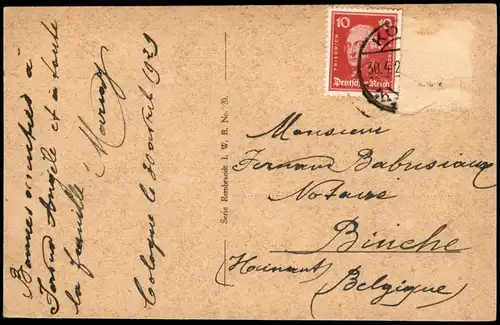 Bonnes amitiés à
Fernand Angèle et à toute
la famille
Cologne le 30 avril 1929
Serie Rembrandt I. W. B. No. 20.
10 10
FRIEDRICH
Deutsches Reich
KÖ
30.4.2
Monsieur
Fernand Babusiaux
Notaire
Binche
(Hainaut)
Belgique